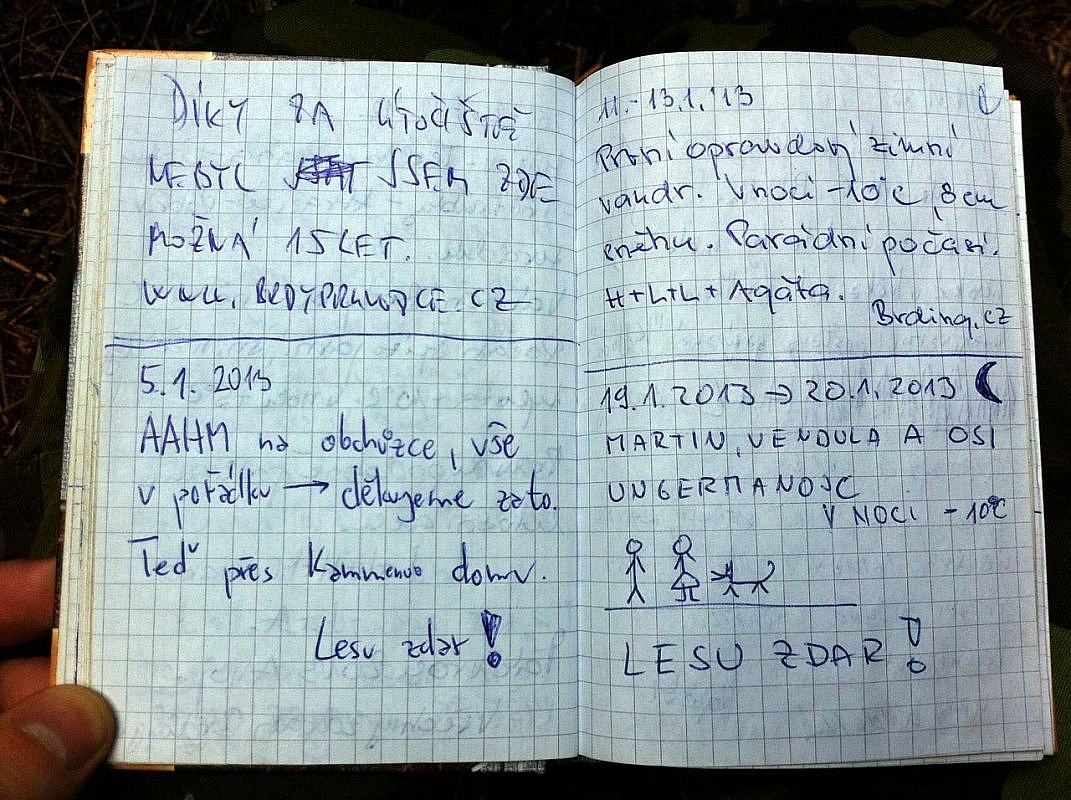 DÍKY ZA ÚTOČIŠTĚ
NEBYL JSEM ZDE
MOŽNÁ 15 LET.
www.BRDYPRUVODCE.CZ
5.1. 2013
AAHM na obchůzce, vše
v pořádku → děkujeme za to.
Teď přes Kamennou domu.
Lesu zdar!
11.-13.1.'13
První opravdový zimní
vandr. V noci -10°C, 8cm
sněhu. Paráidní počasí.
H+L+L+Agáta.
Brdina.cz
19.1.2013 → 20.1.2013
MARTIN, VENDULA A OSI
UNGERMANOJC
V NOCI -10°C
LESU ZDAR!